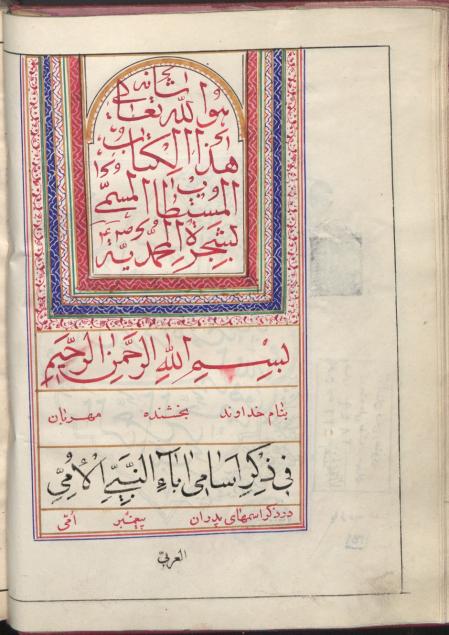 هو الله تعالی شأنه
هذا الکتاب
المستطاب المسمی
بشجرة المحمدیة
بِسْمِ اللهِ الرَّحْمٰنِ الرَّحِیْمِ
بنام خداوند بخشنده مهربان
فی ذِکْرِ اَسامی اٰباءِ النَّبِیِّ الْاُمِّیِّ
در ذکر اسمهای پدران پیغمبر امّی
العربیّ